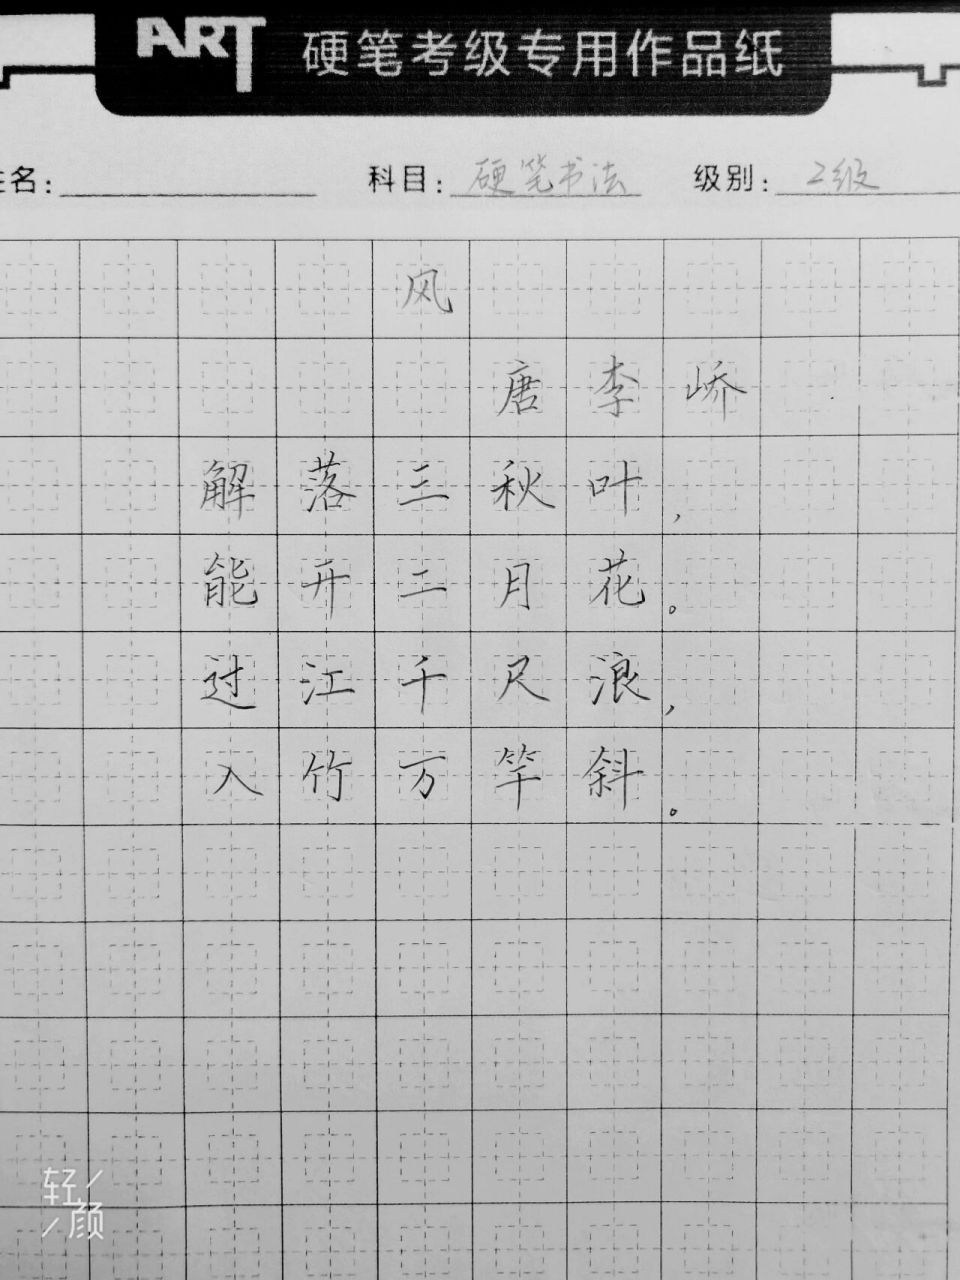 ART 硬笔考级专用作品纸
姓名: 科目: 硬笔书法 级别: 2级
风
唐 李 峤
解落三秋叶,
能开二月花。
过江千尺浪,
入竹万竿斜。
轻颜